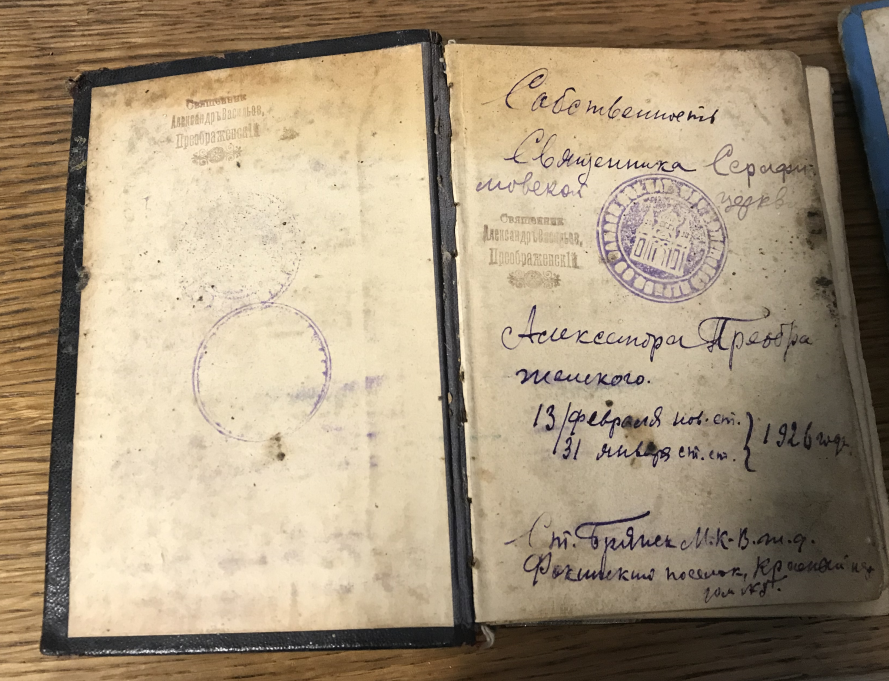 Священник
Александръ Васильев.
Преображенскiй
Собственность
Священника Серафи-
мовской церкв
Священник
Александръ Васильев.
Преображенскiй
Александра Преобра
женского.
13/февраля нов. ст. } 1926 года
31 января ст. ст.
Ст. Брянск М.-К.-В. ж. д.
поселок,
дом №